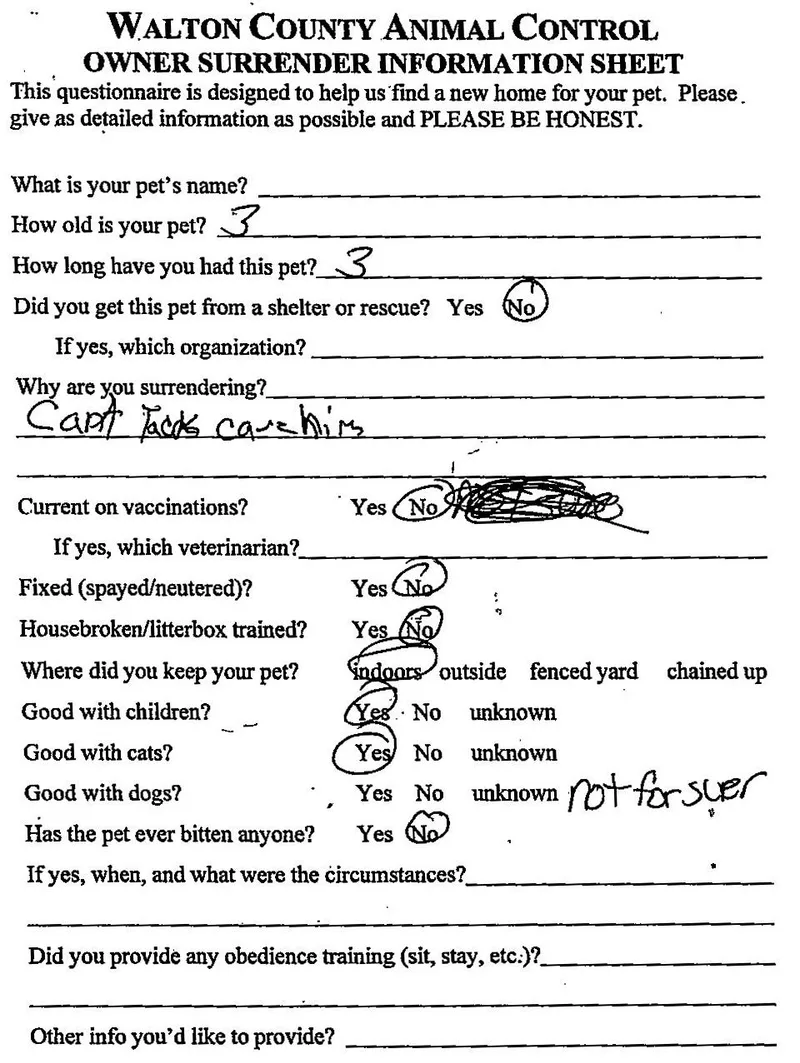 WALTON COUNTY ANIMAL CONTROL
OWNER SURRENDER INFORMATION SHEET
This questionnaire is designed to help us find a new home for your pet. Please
give as detailed information as possible and PLEASE BE HONEST.
What is your pet's name?
How old is your pet? 3
How long have you had this pet? 3
Did you get this pet from a shelter or rescue? Yes No
If yes, which organization?
Why are you surrendering?
Capt
Current on vaccinations? Yes No
If yes, which veterinarian?
Fixed (spayed/neutered)? Yes No
Housebroken/litterbox trained? Yes No
Where did you keep your pet? indoors outside fenced yard chained up
Good with children? Yes No unknown
Good with cats? Yes No unknown
Good with dogs? Yes No unknown not for suer
Has the pet ever bitten anyone? Yes No
If yes, when, and what were the circumstances?
Did you provide any obedience training (sit, stay, etc.)?
Other info you'd like to provide?